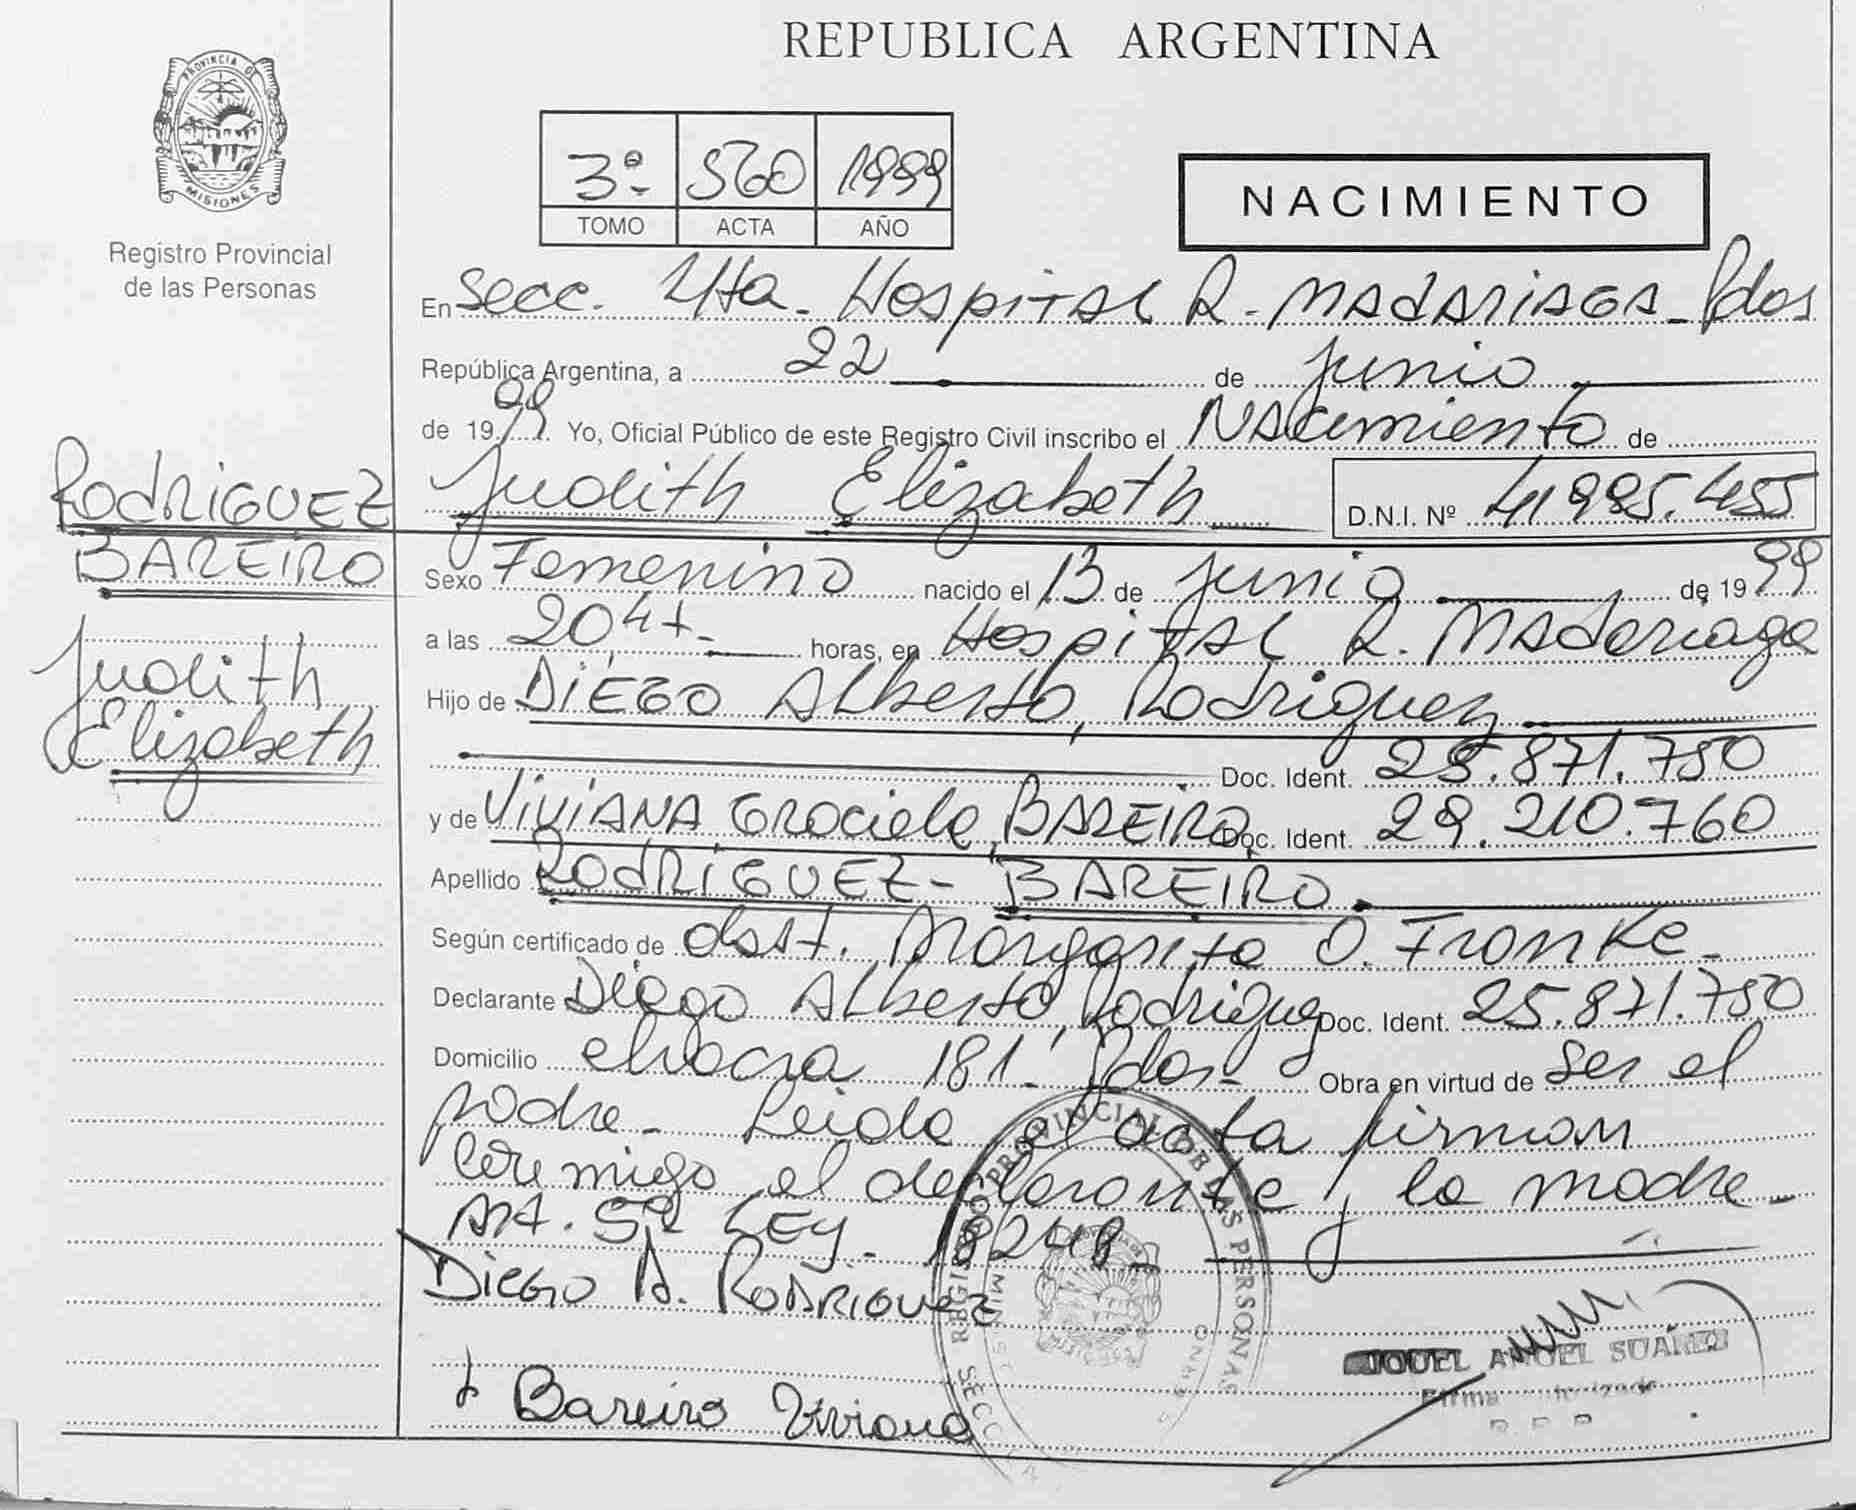 REPUBLICA ARGENTINA
PROVINCIA DE MISIONES
Registro Provincial
de las Personas
3º 560 1999
TOMO ACTA AÑO
NACIMIENTO
En Secc. 4ta. Hospital R. Madariaga - Pdas
República Argentina, a 22 de junio
de 1999. Yo, Oficial Público de este Registro Civil inscribo el Nacimiento de
Judith Elizabeth D.N.I. Nº 41985.455
RODRIGUEZ
BAREIRO
Judith
Elizabeth
Sexo Femenino nacido el 13 de junio de 1999
a las 20,4 horas, en Hospital R. Madariaga
Hijo de Diego Alberto, Rodriguez
Doc. Ident. 25.871.750
y de Viviana Graciela, BAREIRO Doc. Ident. 29.210.760
Apellido RODRIGUEZ - BAREIRO
Según certificado de obst. Margarita O. Franke -
Declarante Diego Alberto, Rodriguez Doc. Ident. 25.871.750
Domicilio chacra 181. Pdas - Obra en virtud de ser el
padre - Leida el acta firman
conmigo el declarante y la madre -
Art. 5º LEY - 18248
Diego A. Rodriguez
Bareiro Viviana
REGISTRO PROVINCIAL DE LAS PERSONAS
ANGEL SUAREZ
Firma Autorizada